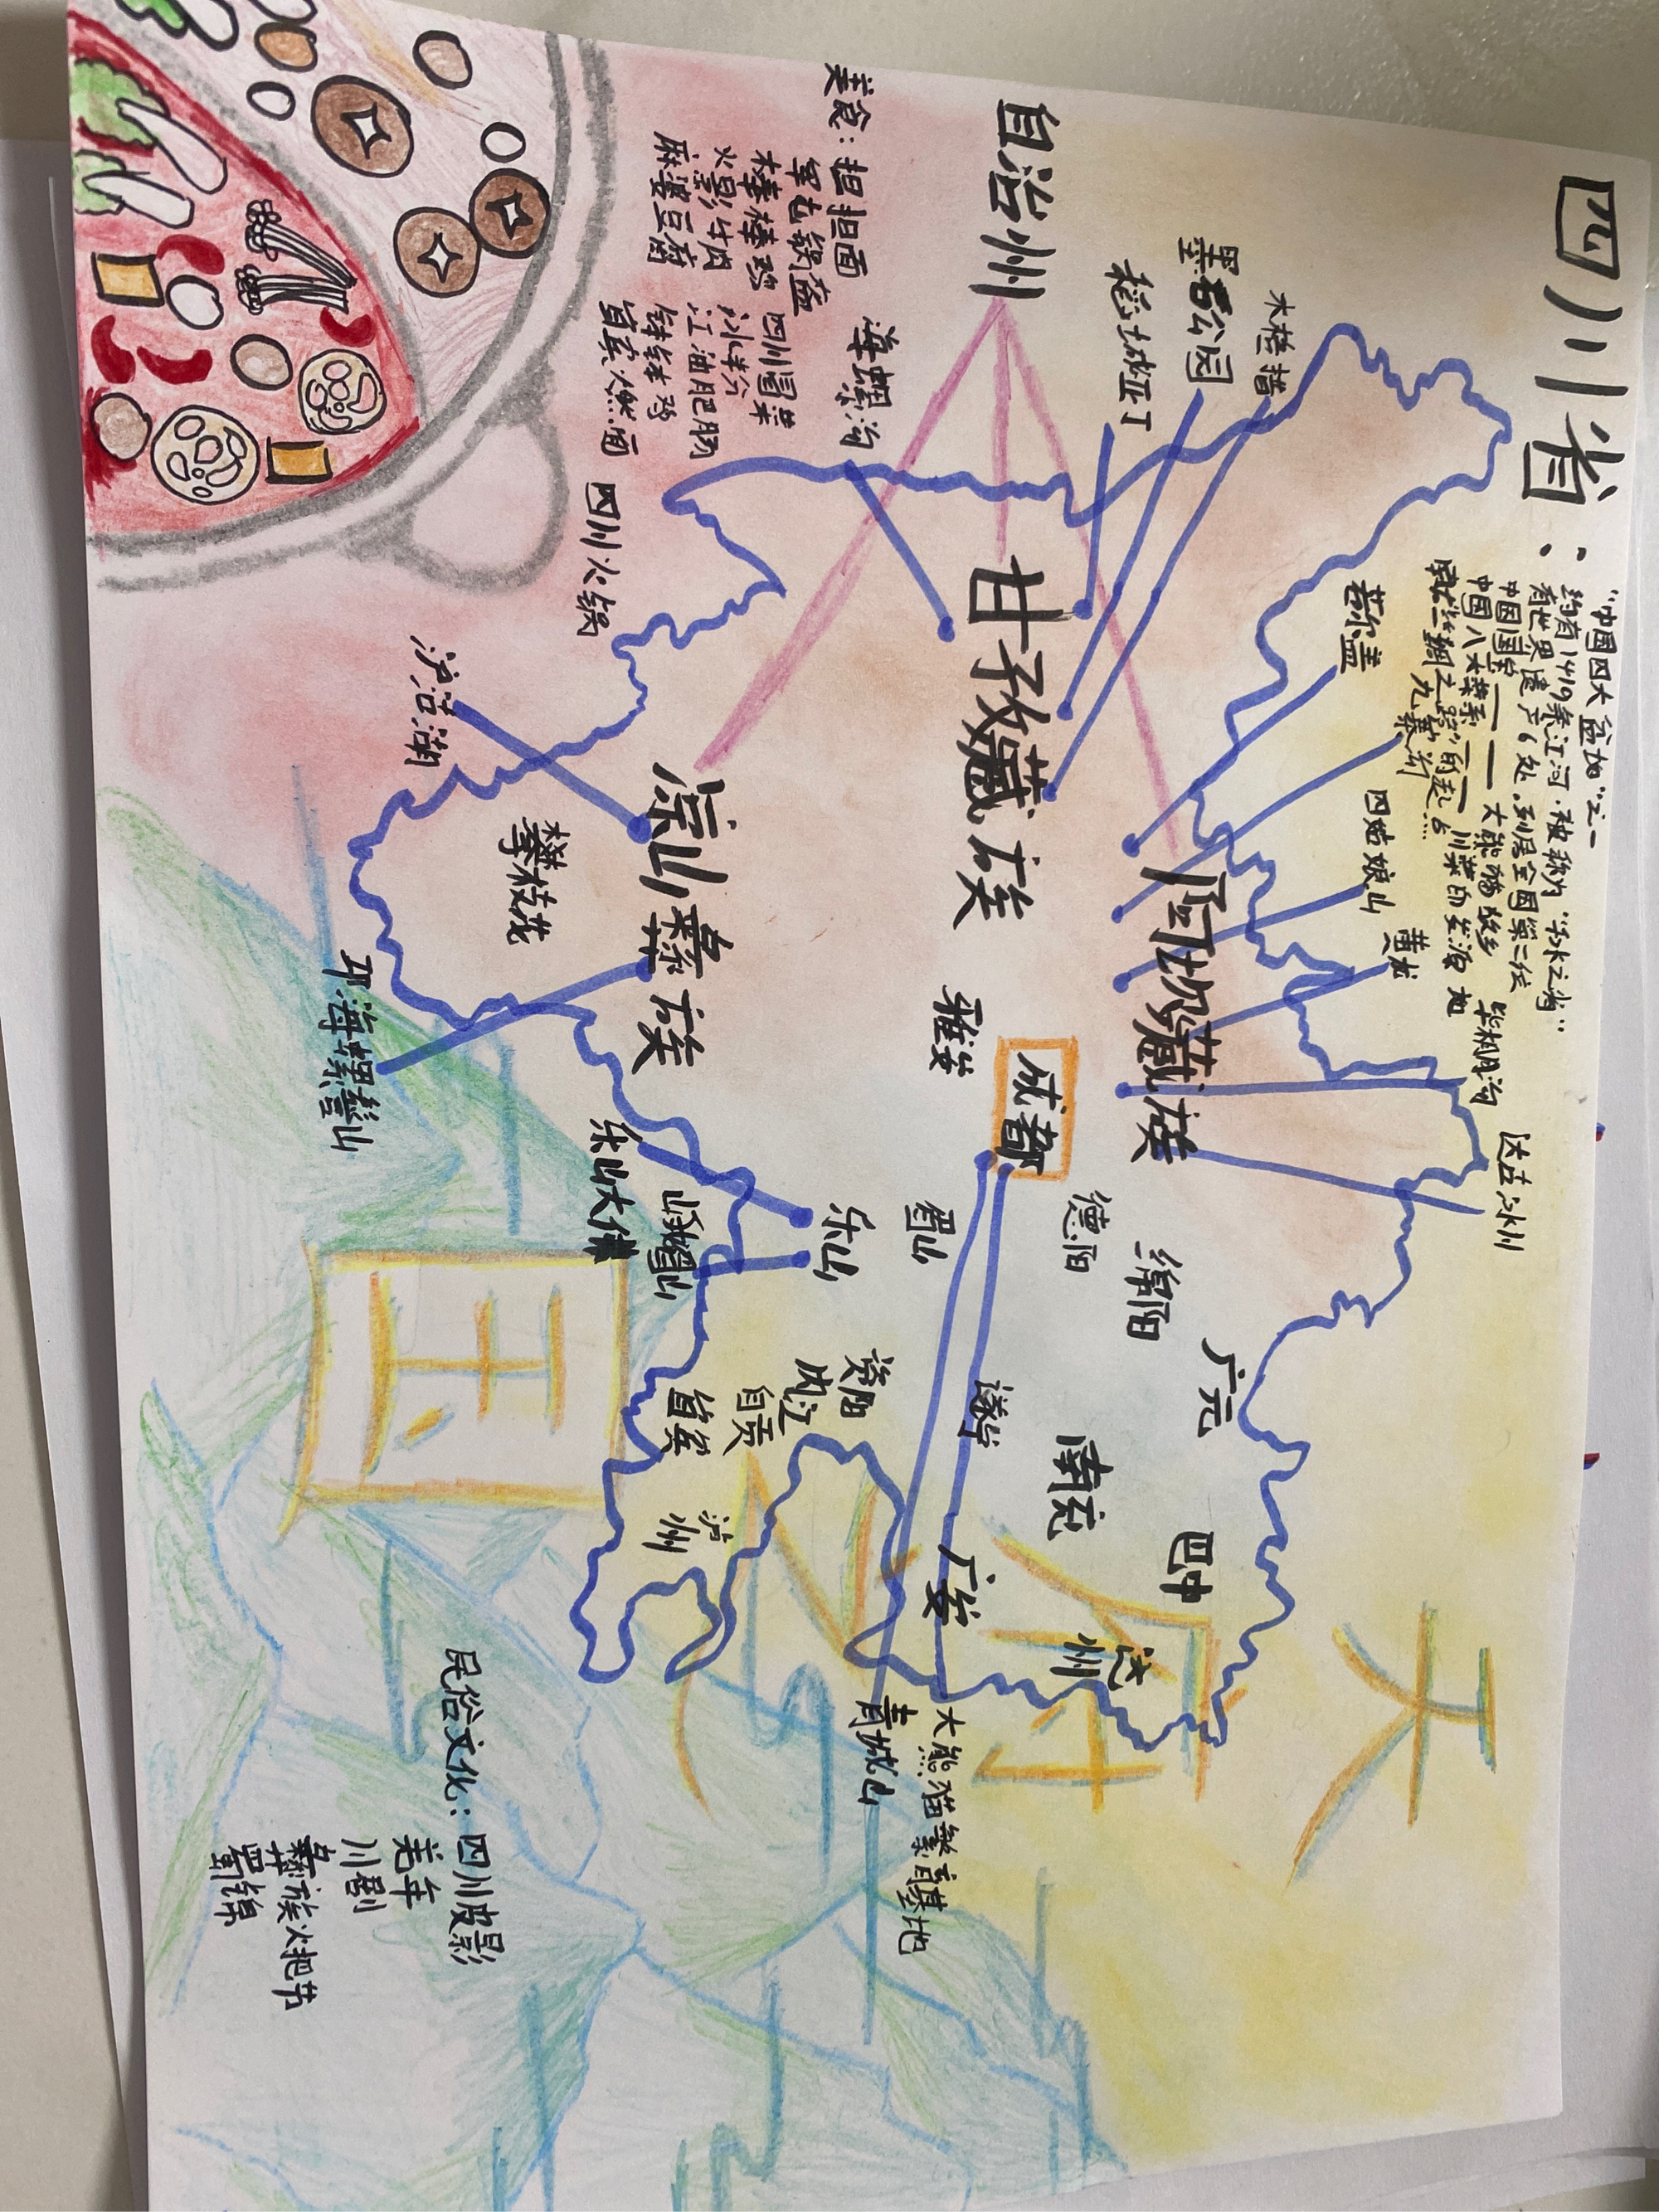 四川省：
"中国四大盆地"之一
约有1419条江河，被称为"千水之省"
有世界遗产6处，列居全国第二位
中国国宝——大熊猫故乡
中国八大菜系——川菜的发源地
自治州
甘孜藏族
阿坝藏族
凉山彝族
木格措
墨石公园
稻城亚丁
海螺沟
若尔盖
九寨沟
四姑娘山
黄龙
毕棚沟
达古冰川
美食：担担面
军屯锅盔
棒棒鸡
火影牛肉
麻婆豆腐
四川冒菜
冰粉
江油肥肠
钵钵鸡
宜宾燃面
四川火锅
泸沽湖
攀枝花
邛海螺髻山
雅安
成都
德阳
绵阳
广元
眉山
乐山
乐山大佛
峨眉山
资阳
内江
自贡
宜宾
泸州
遂宁
南充
巴中
广安
达州
大熊猫繁育基地
青城山
天府之国
民俗文化：四川皮影
羌年
川剧
彝族火把节
蜀锦